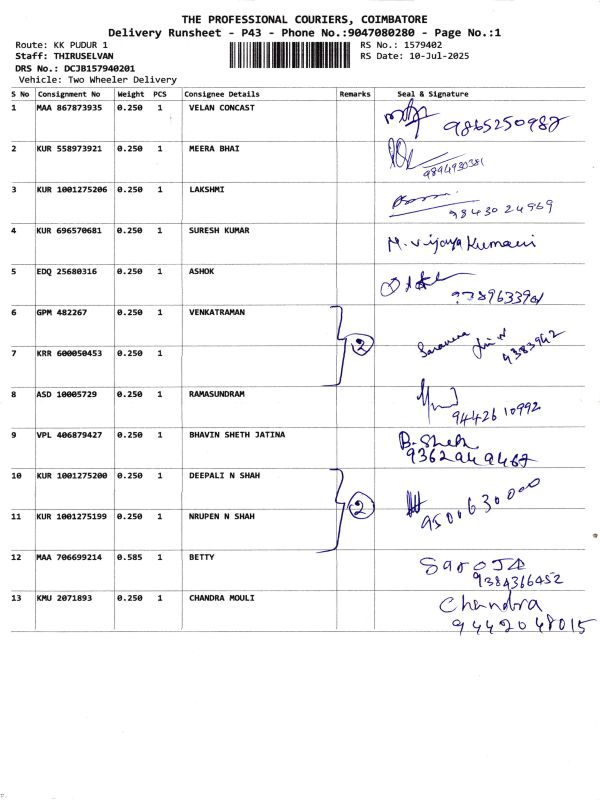 THE PROFESSIONAL COURIERS, COIMBATORE
Delivery Runsheet - P43 - Phone No.:9047080280 - Page No.:1
Route: KK PUDUR 1 RS No.: 1579402
Staff: THIRUSELVAN RS Date: 10-Jul-2025
DRS No.: DCJB157940201
Vehicle: Two Wheeler Delivery
S No Consignment No Weight PCS Consignee Details Remarks Seal & Signature
1 MAA 867873935 0.250 1 VELAN CONCAST 9865250987
2 KUR 558973921 0.250 1 MEERA BHAI 9894930381
3 KUR 1001275206 0.250 1 LAKSHMI 9843024969
4 KUR 696570681 0.250 1 SURESH KUMAR M. Vijaya Kumari
5 EDQ 25680316 0.250 1 ASHOK
6 GPM 482267 0.250 1 VENKATRAMAN
2
7 KRR 600050453 0.250 1
8 ASD 10005729 0.250 1 RAMASUNDRAM 9442610992
9 VPL 406879427 0.250 1 BHAVIN SHETH JATINA B. Sheth
10 KUR 1001275200 0.250 1 DEEPALI N SHAH
2 9500630000
11 KUR 1001275199 0.250 1 NRUPEN N SHAH
12 MAA 706699214 0.585 1 BETTY SaroJA
9384366452
13 KMU 2071893 0.250 1 CHANDRA MOULI Chandra
9442048015